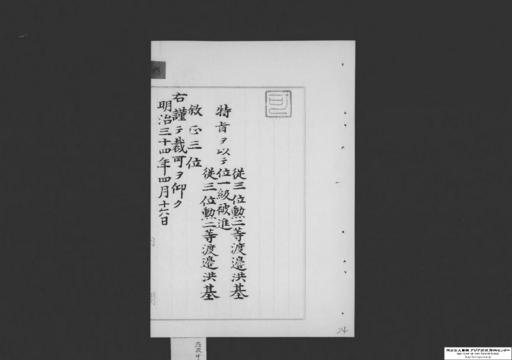 従三位勲二等渡邉洪基
特旨ヲ以テ位一級被進
従三位勲二等渡邉洪基
叙正三位
右謹テ裁可ヲ仰ク
明治三十四年四月十六日